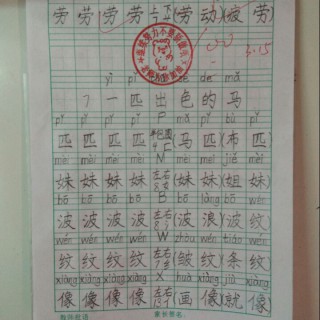 劳 劳 劳 劳 上下 (劳 动)(疲 劳)
3.15
yì pǐ sè de mǎ
17 一 匹 出 色 的 马
pǐ pǐ pǐ P mǎ pǐ bù pǐ
匹 匹 匹 匹 (马 匹)(布 匹)
mèi mèi mèi N mèi mei jiě mèi
妹 妹 妹 左右 (妹 妹)(姐 妹)
bō bō bō B bō làng bō wén
波 波 波 左右 (波 浪)(波 纹)
wén wén wén W zhòu wén tiáo wén
纹 纹 纹 左右 (皱 纹)(条 纹)
xiàng xiàng xiàng X huà xiàng jiù xiàng
像 像 像 像 左右 (画 像)(就 像)
教师批语 家长签名